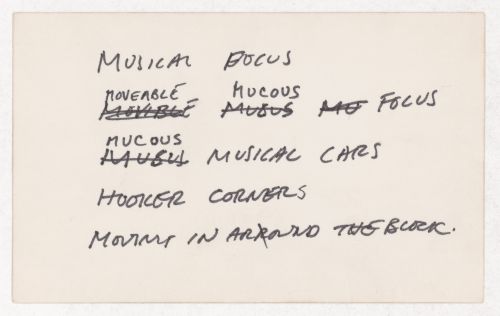 MUSICAL FOCUS
MOVEABLE MUCOUS
MOVIBLE MUBUS MU FOCUS
MUCOUS
MUSICAL CARS
HOOKER CORNERS
MOVING IN ARROUND THE BLOCK.